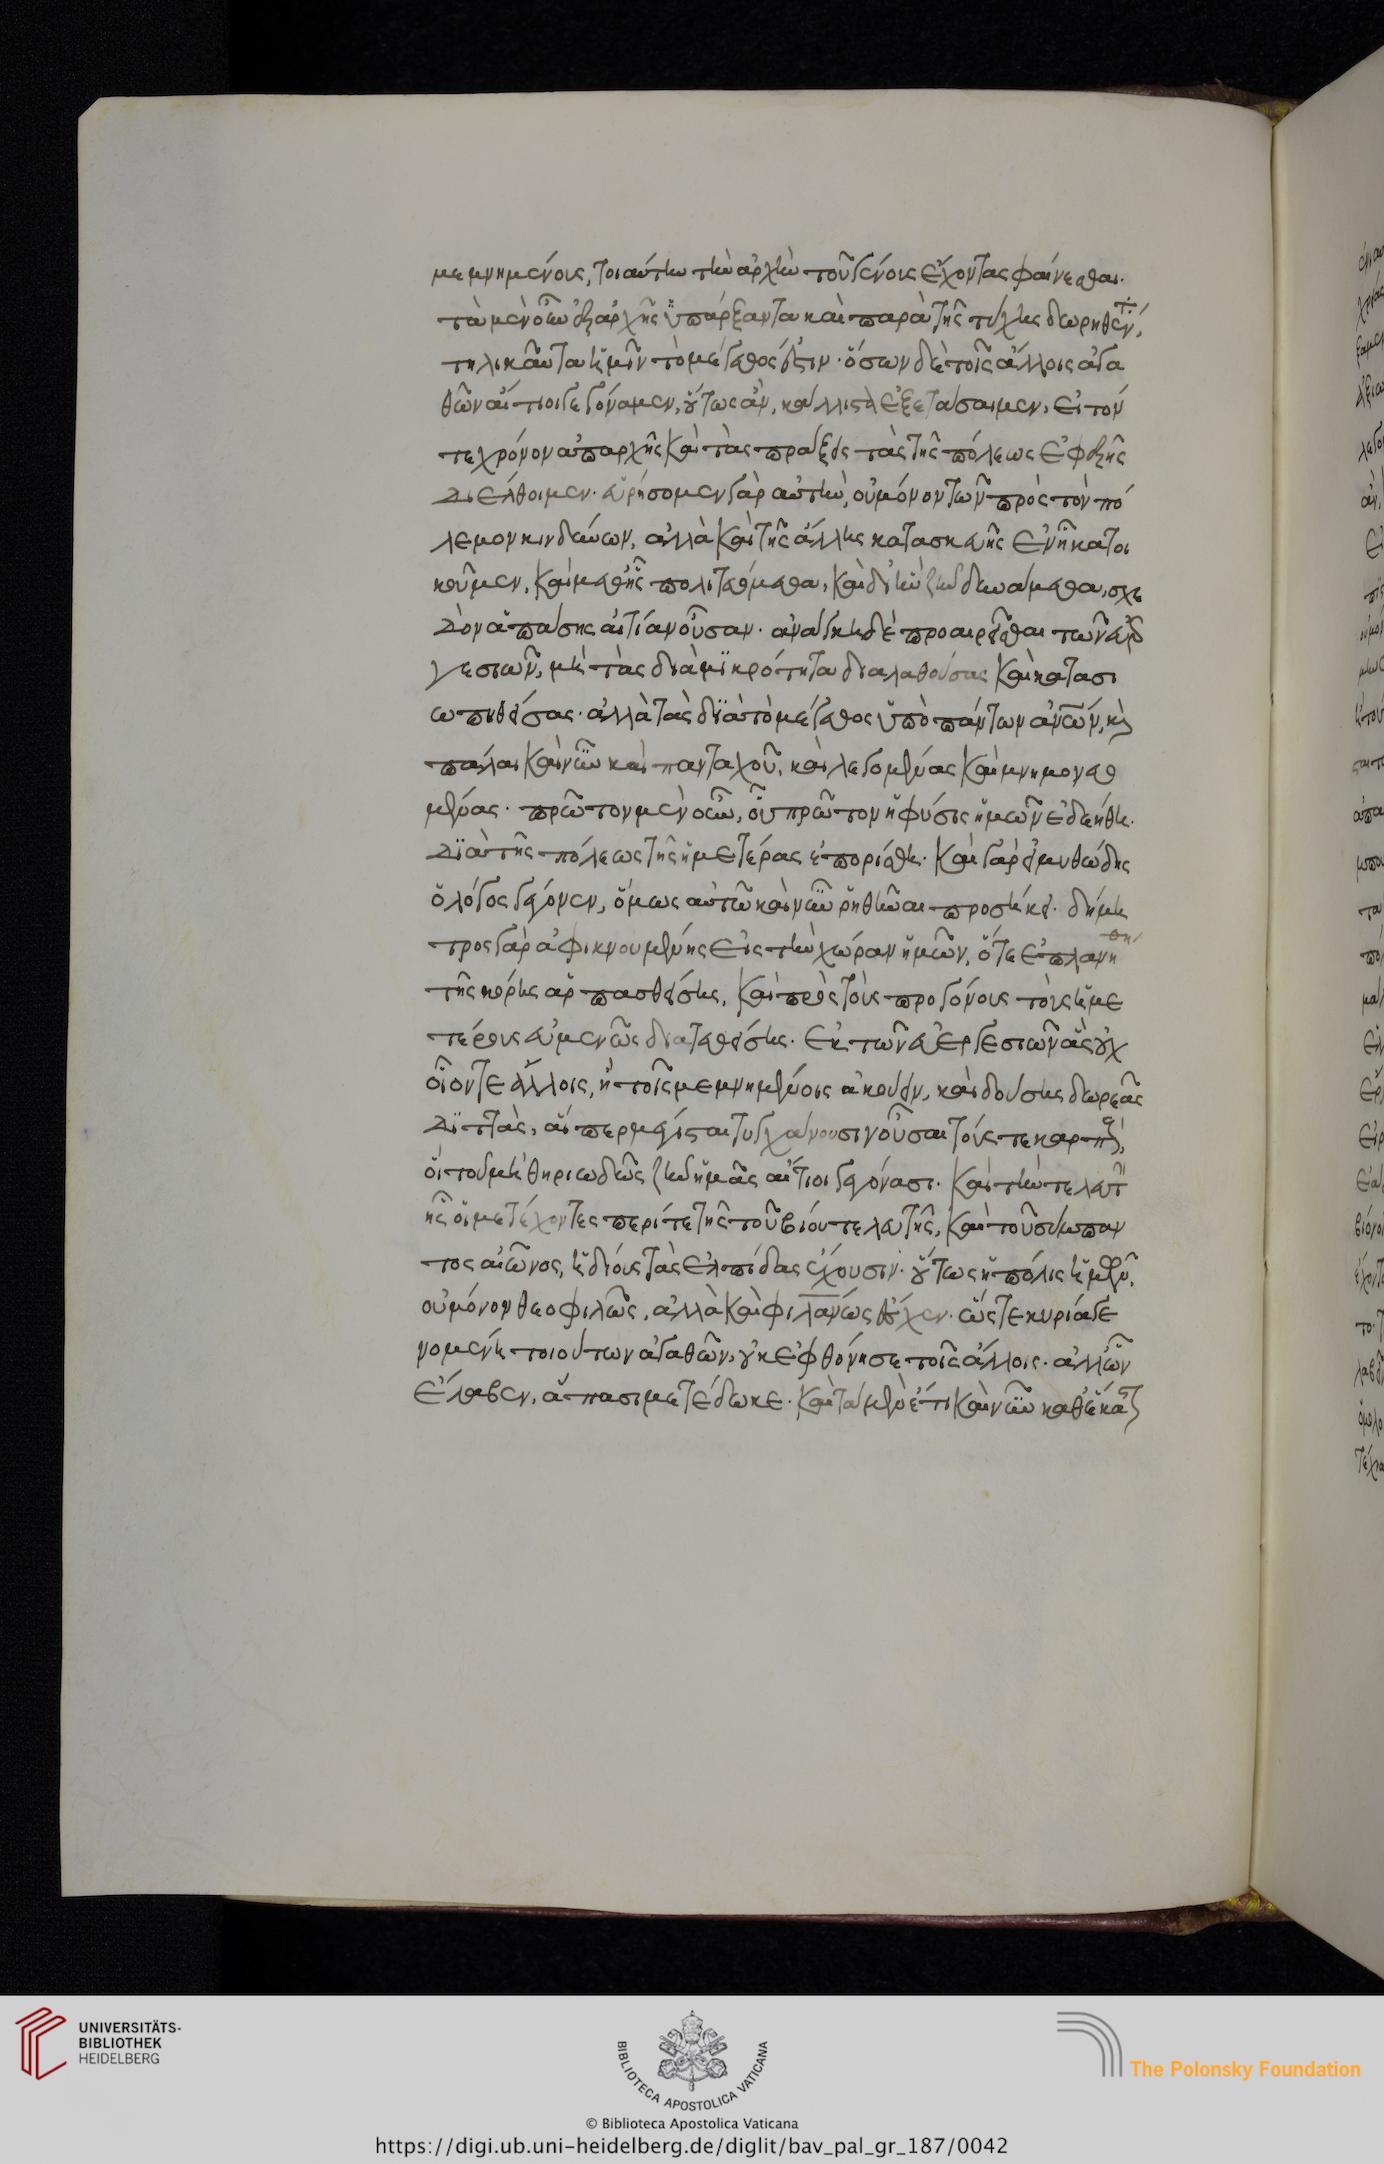 μεμνημένοις, τοιαύτην τὴν ἀρχὴν τοῦ γένους ἔχοντας φαίνεσθαι.
τὰ μὲν οὖν ἐξαρχῆς ὑπάρξαντα καὶ παρὰ τῆς τύχης δωρηθέντ(α),
τηλικαῦτα ἡμῖν τὸ μέγαθος ἐστιν· ὅσων δὲ τοῖς ἄλλοις ἀγα
θῶν αἴτιοι γεγόναμεν, οὕτως ἂν, κάλλιστ' ἐξετάσαιμεν, εἰ τόν
τε χρόνον ἀπαρχῆς καὶ τὰς πράξεις τὰς τῆς πόλεως ἐφεξῆς
διέλθοιμεν. εὑρήσομεν γὰρ αὐτὴν, οὐ μόνον τῶν πρὸς τὸν πό
λεμον κινδύνων, ἀλλὰ καὶ τῆς ἄλλης κατασκευῆς ἐν ἧ κατοι
κοῦμεν, καὶ μεθ' ἧς πολιτευόμεθα, καὶ δι' ἣν ζῆν δυνάμεθα, σχε
δὸν ἁπάσης αἰτίαν οὖσαν. ἀνάγκη δὲ προαιρεῖσθαι τῶν εὐερ
γεσιῶν, μὴ τὰς διὰ μικρότητα διαλαθούσας καὶ κατασι
ωπηθείσας· ἀλλὰ τὰς διὰ τὸ μέγεθος ὑπὸ πάντων ἀνῶν, καὶ
πάλαι καὶ νῦν καὶ πανταχοῦ, καὶ λεγομένας καὶ μνημονευο
μένας. πρῶτον μὲν οὖν, οὗ πρῶτον ἡ φύσις ἡμῶν ἐδεήθη.
διὰ τῆς πόλεως τῆς ἡμετέρας ἐπορίσθη. καὶ γὰρ εἰ μυθώδης
ὁ λόγος γέγονεν, ὅμως αὐτῶ καὶ νῦν ῥηθῆναι προσήκει. δήμη
τρος γὰρ ἀφικνουμένης εἰς τὴν χώραν ἡμῶν, ὅτε ἐπλανή(θη)
τῆς κόρης ἁρπασθείσης, καὶ πρὸς τοὺς προγόνους τοὺς ἡμε
τέρους εὐμενῶς διατεθείσης. ἐκ τῶν εὐεργεσιῶν ἃς οὐχ
οἷόν τε ἄλλοις, ἢ τοῖς μεμνημένοις ἀκούειν, καὶ δούσης δωρεὰς
διττὰς, αἵπερ μέγισται τυγχάνουσιν οὖσαι τούς τε καρποὺς,
οἳ τοῦ μὴ θηριωδῶς ζῆν ἡμᾶς αἴτιοι γεγόνασι. καὶ τὴν τελετ(ὴν)
ἧς οἱ μετέχοντες περί τε τῆς τοῦ βίου τελευτῆς, καὶ τοῦ σύμπαν
τος αἰῶνος, ἡδίους τὰς ἐλπίδας ἔχουσιν. οὕτως ἡ πόλις ἡμῶν,
οὐ μόνον θεοφιλῶς, ἀλλὰ καὶ φιλανως ἔσχεν. ὥστε κυρία γε
νομένη τοιούτων ἀγαθῶν, οὐκ ἐφθόνησε τοῖς ἄλλοις. ἀλλ' ὧν
ἔλαβεν, ἅπασι μετέδωκε. καὶ τὰ μὲν ἔτι καὶ νῦν καθ' ἕκαστ(ον)
UNIVERSITÄTS-
BIBLIOTHEK
HEIDELBERG
BIBLIOTECA APOSTOLICA VATICANA
© Biblioteca Apostolica Vaticana
The Polonsky Foundation
https://digi.ub.uni-heidelberg.de/diglit/bav_pal_gr_187/0042